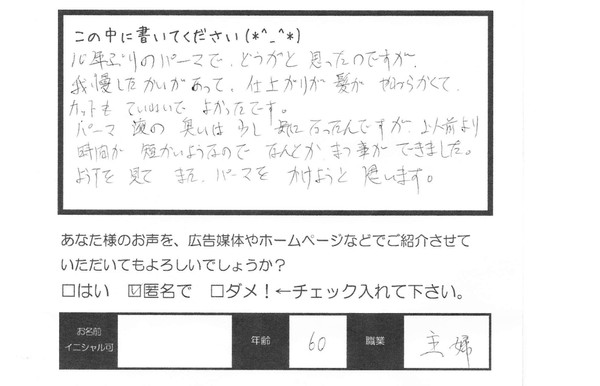 この中に書いてください(*^_^*)
10年ぶりのパーマで、どうかと思ったのですが、
我慢したかいがあって、仕上がりが髪がやわらかくて、
カットもていねいでよかったです。
パーマ液の臭いは少し気になったんですが、以前より
時間が短かいようなのでなんとかまつ事ができました。
ようすを見てまた、パーマをかけようと思います。
あなた様のお声を、広告媒体やホームページなどでご紹介させて
いただいてもよろしいでしょうか？
□はい ☑匿名で □ダメ！←チェック入れて下さい。
お名前
イニシャル可
年齢 60 職業 主婦